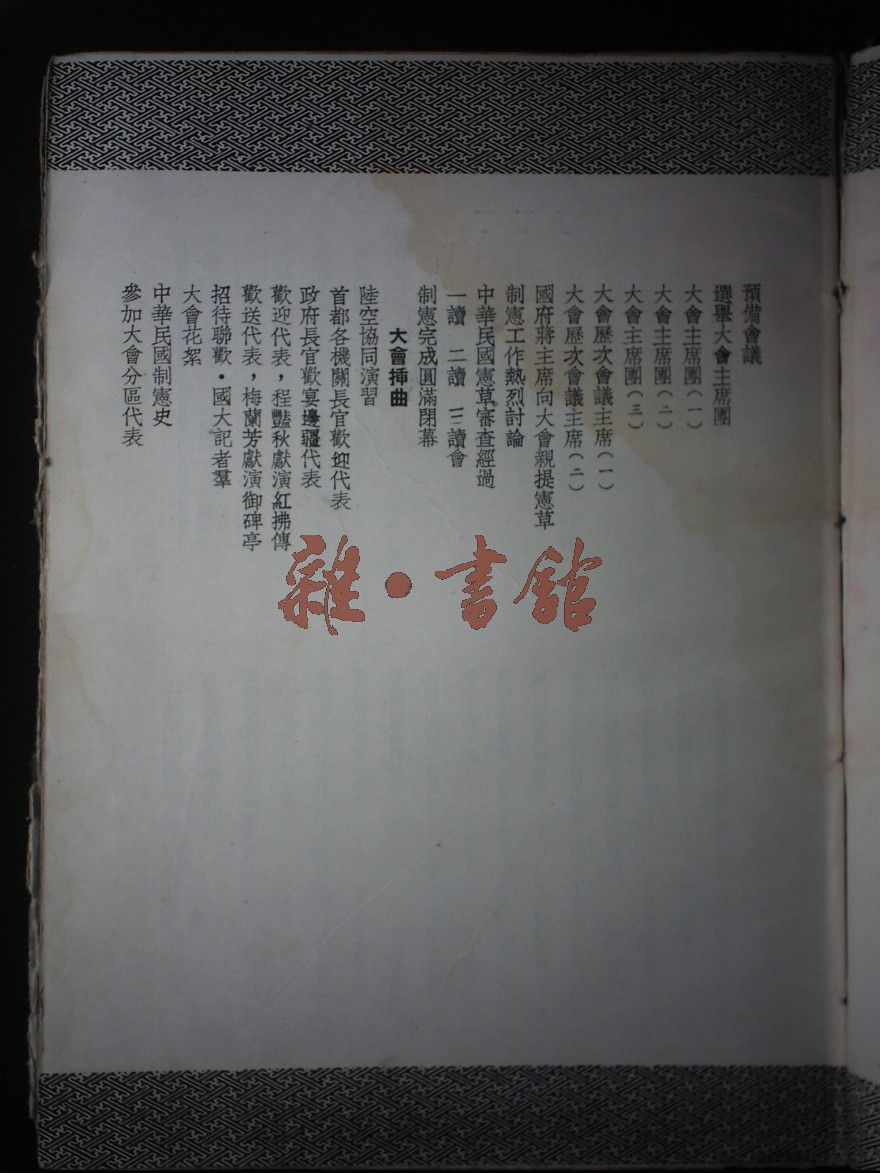 預備會議
選舉大會主席團
大會主席團(一)
大會主席團(二)
大會主席團(三)
大會歷次會議主席(一)
大會歷次會議主席(二)
國府蔣主席向大會親提憲草
制憲工作熱烈討論
中華民國憲草審查經過
一讀 二讀 三讀會
制憲完成圓滿閉幕
大會揷曲
陸空協同演習
首都各機關長官歡迎代表
政府長官歡宴邊疆代表
歡迎代表，程豔秋獻演紅拂傳
歡送代表，梅蘭芳獻演御碑亭
招待聯歡・國大記者羣
大會花絮
中華民國制憲史
參加大會分區代表
雜・書館